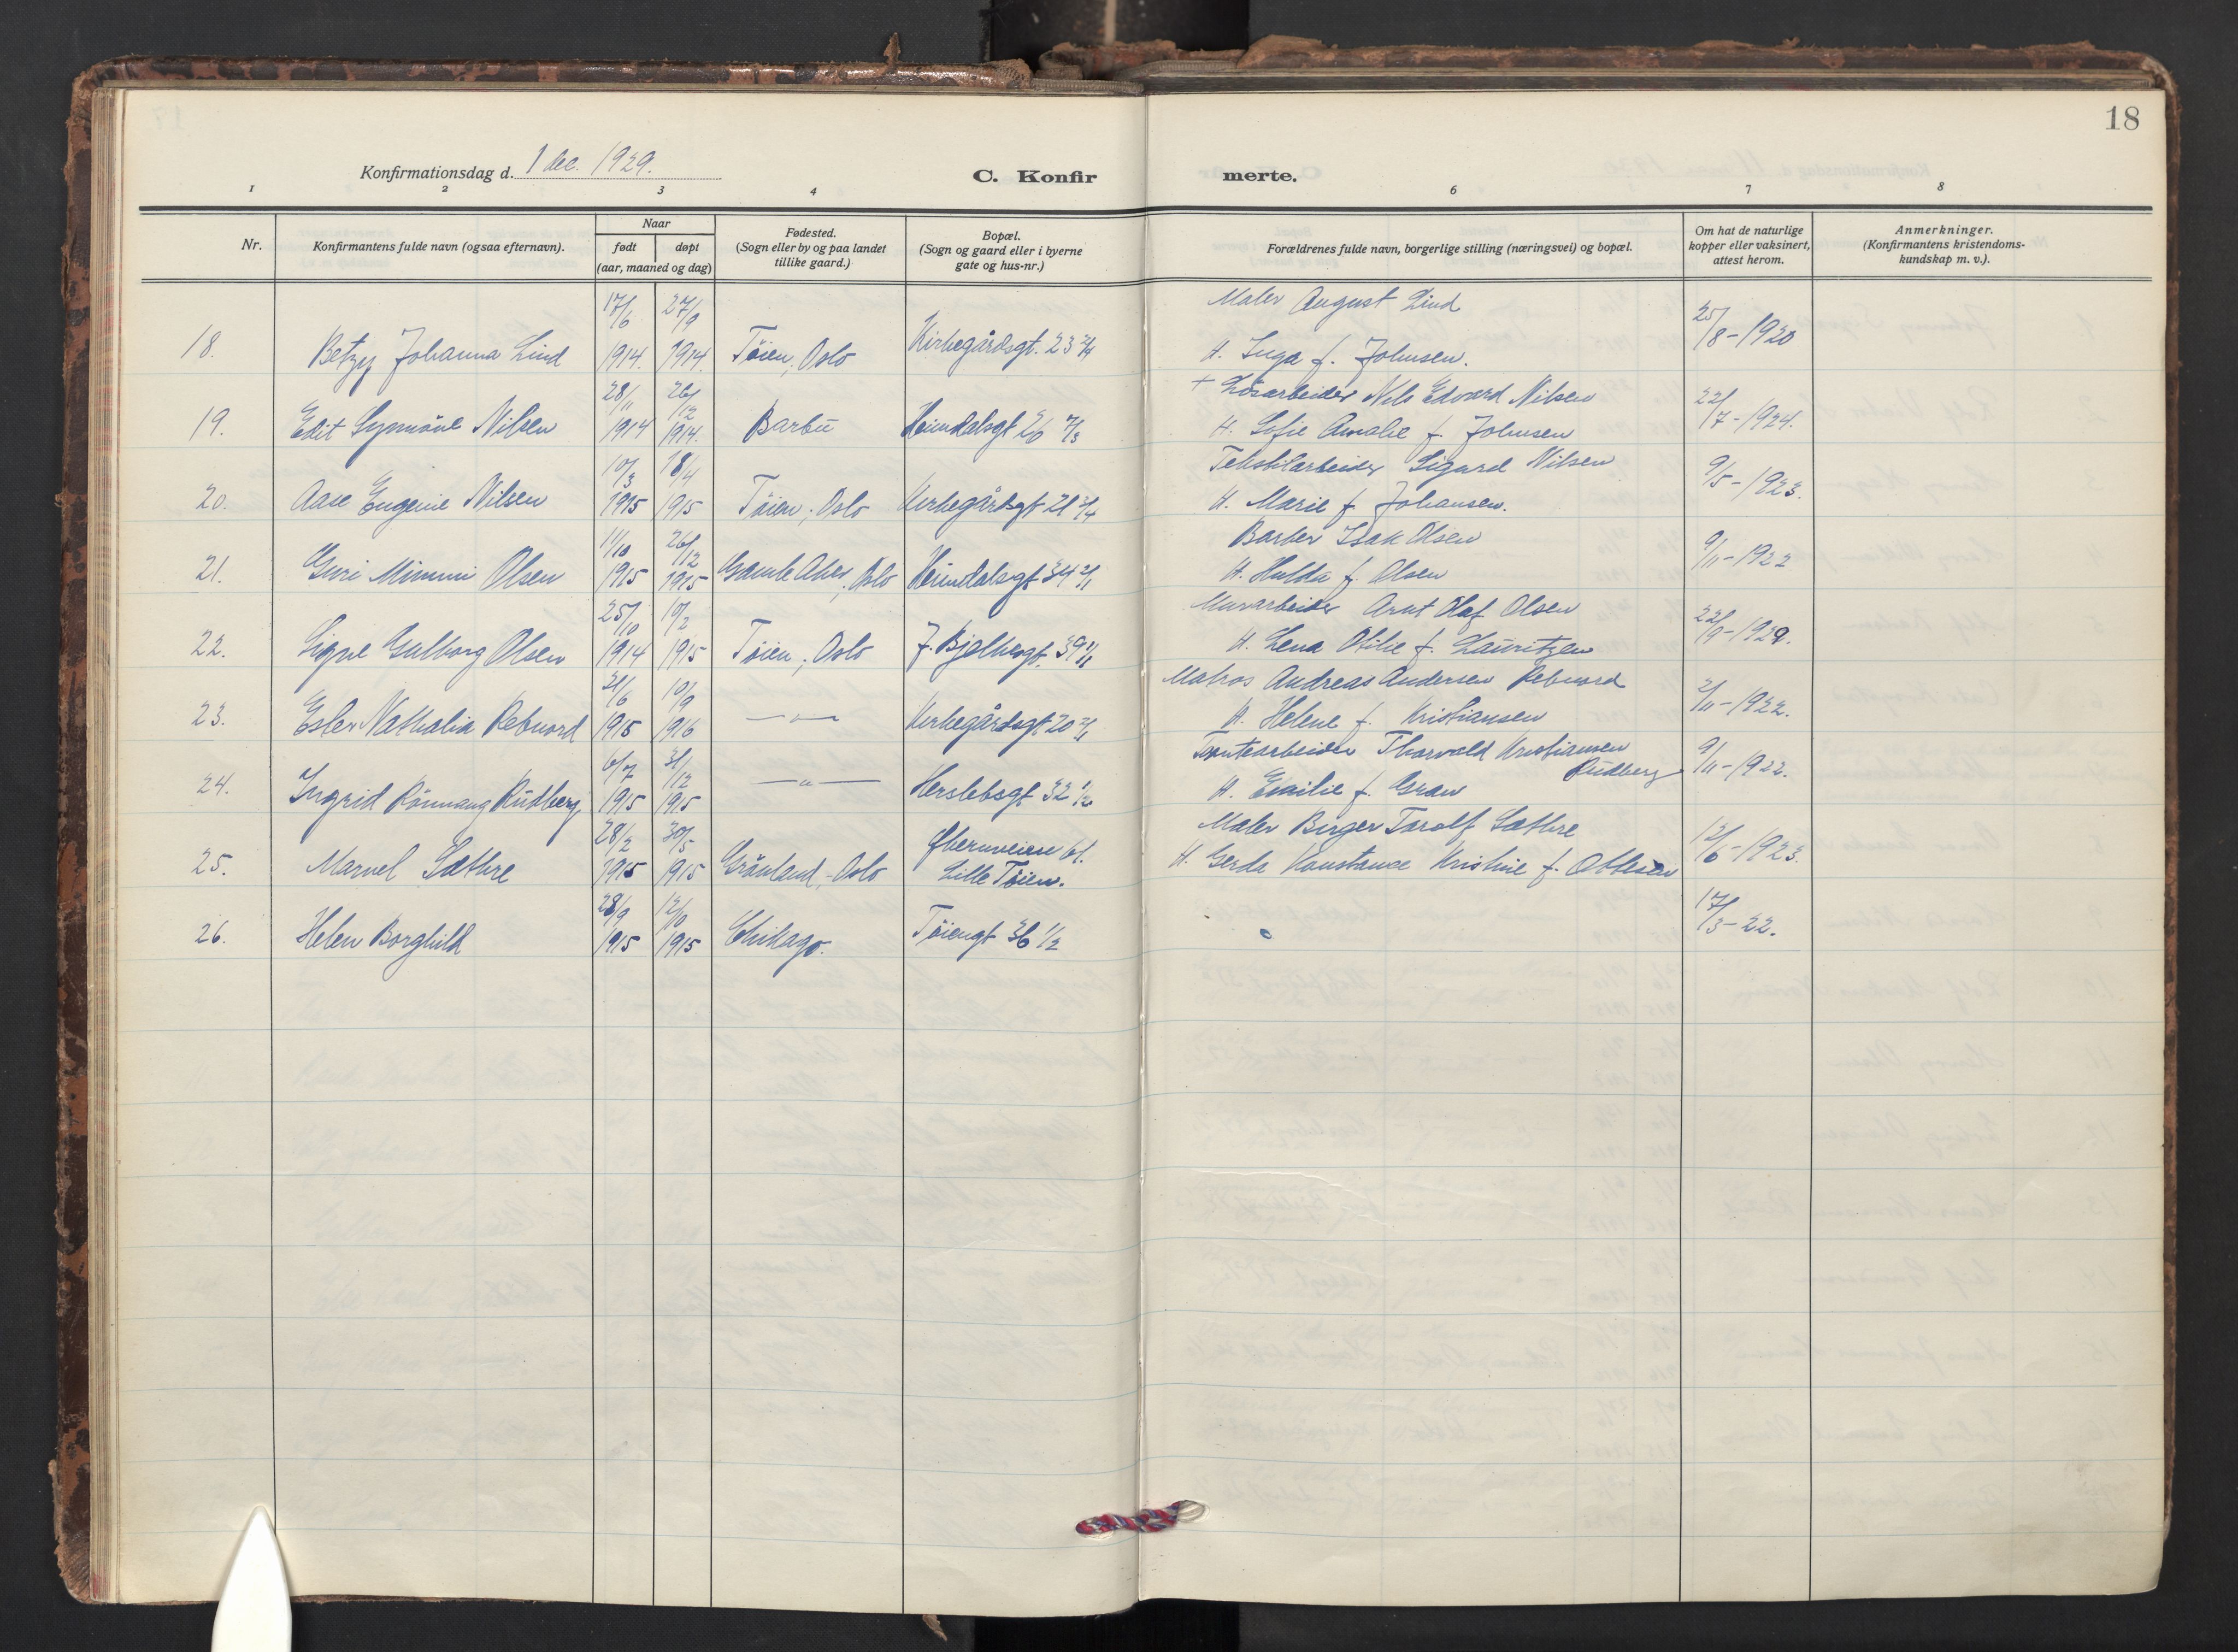 18
Konfirmationsdag d. 1 dec. 1929.
C. Konfir merte.
1 2 3 4 6 7 8
Nr.
Konfirmantens fulde navn (ogsaa efternavn).
Naar
født
døpt
(aar, maaned og dag)
Fødested.
(Sogn eller by og paa landet
tillike gaard.)
Bopæl.
(Sogn og gaard eller i byerne
gate og hus-nr.)
Forældrenes fulde navn, borgerlige stilling (næringsvei) og bopæl.
Om hat de naturlige
kopper eller vaksinert,
attest herom.
Anmerkninger.
(Konfirmantens kristendoms-
kundskap m. v.).
17/6 27/9 Maler August Lind
18. Betzy Johanna Lind 1914. 1914. Töien, Oslo Kirkegårdsgt. 23 25/8-1920
H. Inga f. Johnsen.
28/11 26/12 + Lösarbeider Nils Edvard Nilsen
19. Edit Synnöve Nilsen 1914 1914. Barbu Heimdalsgt 26 22/7-1924.
H. Sofie Amalie f. Johnsen
10/3 18/4 Tekstilarbeider Sigurd Nilsen
20. Aase Eugenie Nilsen 1915 1915 Töien, Oslo Kirkegårdsgt 21 9/5-1923.
H. Marie f. Johansen.
11/10 26/12 Barber Isak Olsen
21. Guri Mimmi Olsen 1915 1915 Gamle Aker, Oslo Heimdalsgt 34 9/11-1922
H. Hulda f. Olsen
25/10 10/2 Murarbeider Arnt Olaf Olsen
22. Signe Gulborg Olsen 1914 1915 Töien, Oslo J. Bjelkesgt. 39 22/9-1929.
H. Lena Otilie f. Lauritzen
10/9 Matros Andreas Andersen Rebnord
23. Ester Nathalia Rebnord 1915 1916 — " — Kirkegårdsgt 20 2/11-1922.
H. Helene f. Kristiansen
6/7 31/12 Thorvald Kristiansen
Rudberg
24. Ingrid Rönnaug Rudberg 1915 1915 — " — Herslebsgt 32 1/2 9/11-1922.
H. Emilie f. Gran
28/2 30/5 Økernveien 61. Maler Birger Torolf Sæthre
25. Marvel Sæthre 1915 1915 Grönland, Oslo Lille Töien. 12/6-1923.
H. Gerda Konstanse Kristine f. Ottesen
28/9 12/10
26. Helen Borghild 1915 1915 Chikago. Töiengt 36 1/2 17/3-22.